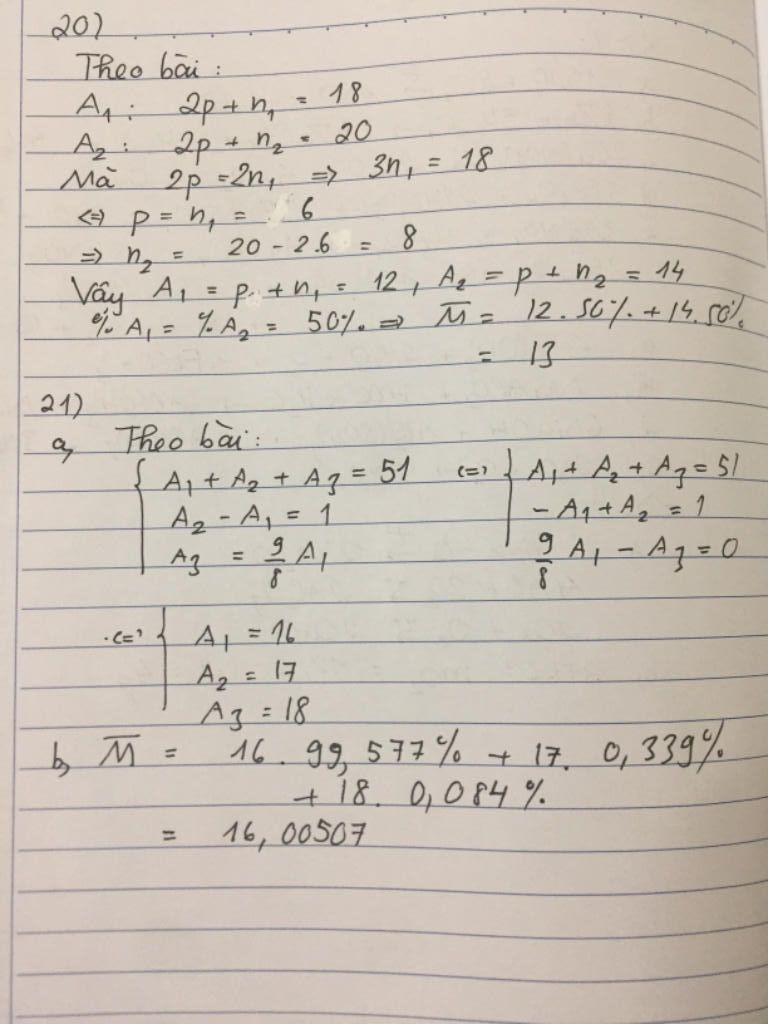 20)
Theo bài :
A₁ : 2p + n₁ = 18
A₂ : 2p + n₂ = 20
Mà 2p = 2n₁ => 3n₁ = 18
<=> p = n₁ = 6
=> n₂ = 20 - 2.6 = 8
Vậy A₁ = p + n₁ = 12 , A₂ = p + n₂ = 14
% A₁ = % A₂ = 50% => M̅ = 12 . 50% + 14. 50%
= 13
21)
a, Theo bài :
{ A₁ + A₂ + A₃ = 51 <=> { A₁ + A₂ + A₃ = 51
A₂ - A₁ = 1 - A₁ + A₂ = 1
A₃ = 9/8 A₁ 9/8 A₁ - A₃ = 0
<=> { A₁ = 16
A₂ = 17
A₃ = 18
b, M̅ = 16 . 99,577% + 17. 0,339%
+ 18. 0,084 %
= 16,00507